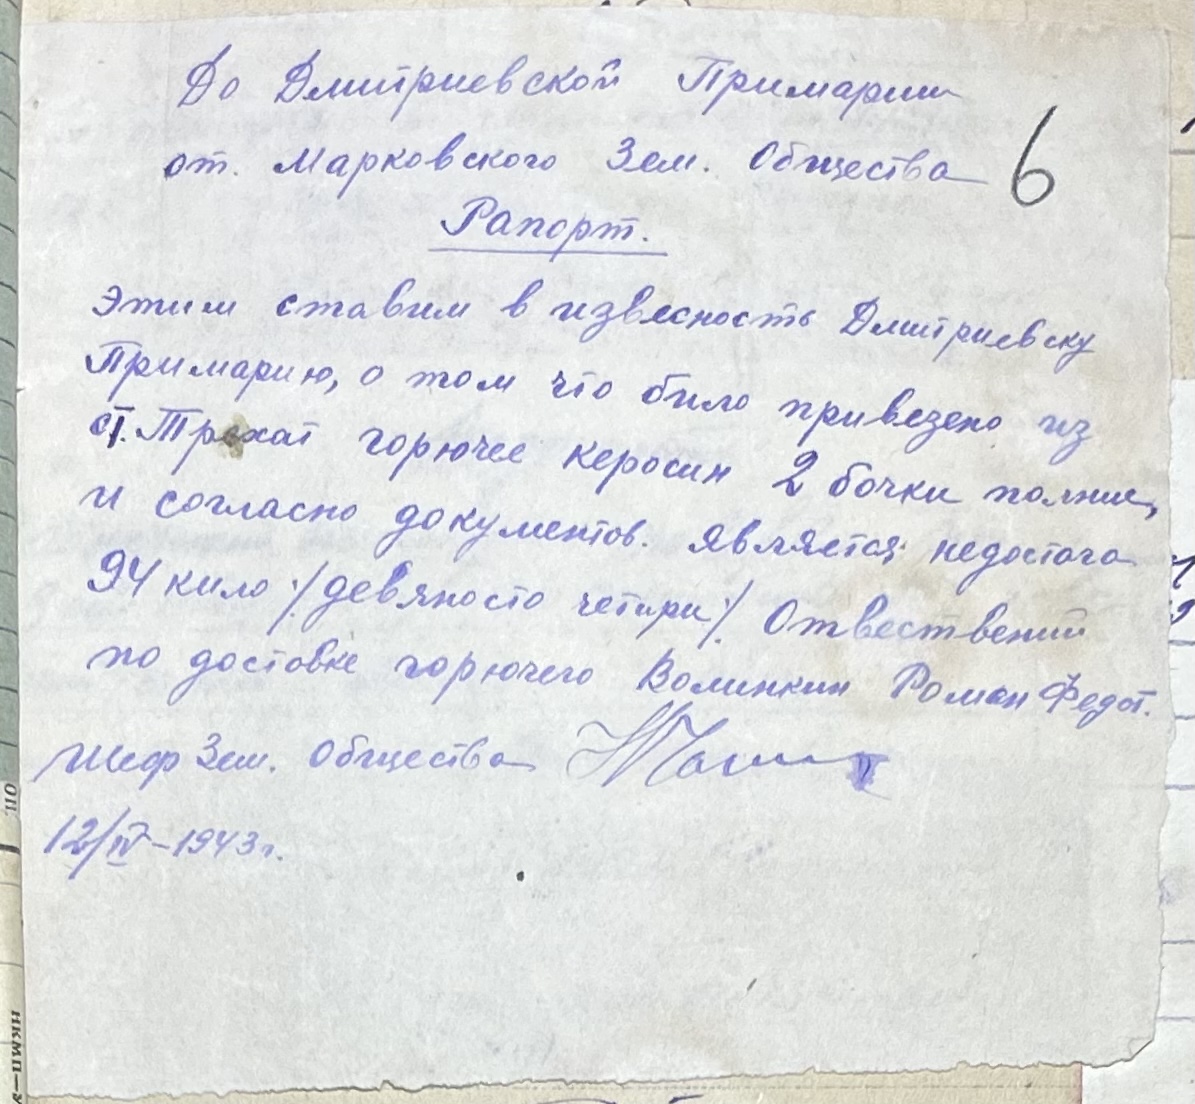 До Дмитриевской Примарии
от. Марковского Зем. Общества
6
Рапорт.
Этим ставим в извесность Дмитриевску
Примарию, о том что било привезено из
ст. Трихат горючее керосин 2 бочки полние,
и согласно документов. является недостача
94 кило /девяносто четири/. Отвествений
по доставке горючего Волинкин Роман Федот.
Шеф Зем. Общества
12/IV-1943г.